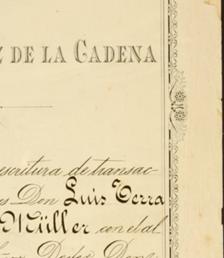 Z DE LA CADENA
escritura de transac-
es Don Luis Terra
Müller con el al